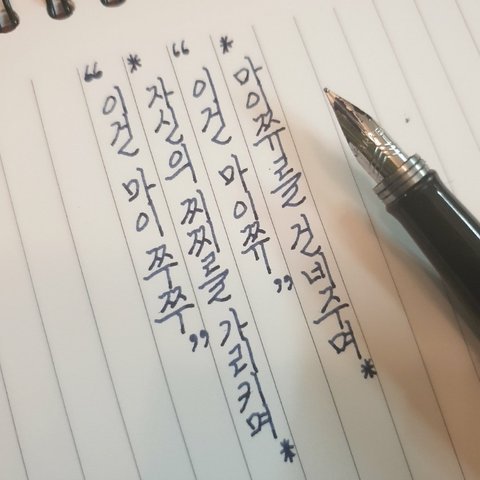 *마이쮸를 건네주며*
“이건 마이쮸”
*자신의 찌찌를 가리키며*
“이건 마이 쭈쭈”